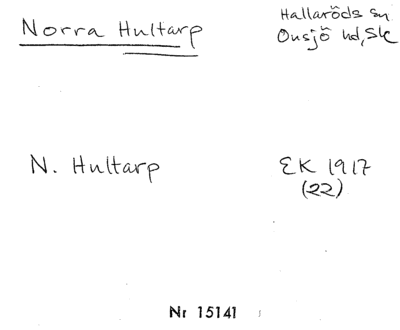 Norra Hultarp
Hallaröds sn
Onsjö hd, Sk
N. Hultarp
EK 1917
(22)
Nr 15141